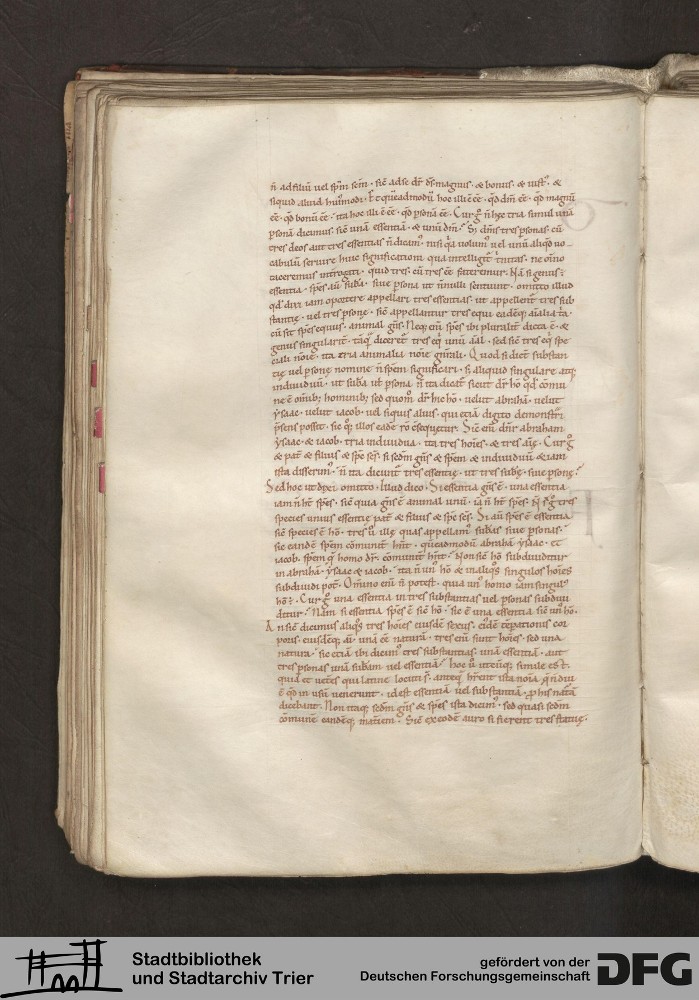 n̄ ad filiū uel sp̄m sc̄m · sic̄ ad se dr̄ ds̄ · magnus · & bonus · & iustꝰ · &
siquid aliud huiꝰmodi
ēē · qd bonū ēē · ita hoc illi ē ēē · qd p̄sonā ēē · Cur ḡ n̄ hęc tria simul unā
p̄sonā dicimus · sic̄ unā essentiā · & unū dm̄ · S; dicimꝰ tres p̄sonas · cū
tres deos aut tres essentias n̄ dicamꝰ · nisi q̄a uolumꝰ uel unū aliqd uo
cabulū seruire huic significationi qua intelligit trinitas · ne om̄no
taceremus int̄rogati · quid tres · cū tres ēē fateremur · Nā si genus ē
essentia · spēs aū subā · siue p̄sona ut n̄nulli sentiunt · omitto illud
qd dixi iam oportere appellari tres essentias · ut appellent̄ tres sub
stantię · uel tres p̄sonę · sic̄ appellantur tres equi eadēq; aīalia tā ·
cū sit spēs equus · animal gn̄s · Neq; enī spēs ibi pluralit̄ dicta ē · &
genus singularit̄ · tāq̄ dicerēt tres eq̇ unū aīal · sed sic̄ tres eq̇ spe
ciali noīe · ita tria animalia noīe gn̄ali · Quod si dicēt substan
tię uel p̄sonę nomine n̄ spēm significari · s; aliquid singulare atq;
indiuiduū · ut subā uel p̄sona n̄ ita dicat̄ sicut dr̄ hō qd cōmu
ne ē om̄ib; hominib; sed quom̊ dr̄ hic hō · uelut abrahā · uelut
ysaac · uelut iacob · uel siquis alius · qui etiā digito demonstrari
p̄sens possit · sic q̄; illos eadē rō c̄sequetur · Sic̄ enī dn̄r abraham
ysaac · & iacob · tria indiuidua · ita tres hoīes · & tres aīę · Cur ḡ
& pat̄ & filius & spc̄ scs̄ · si scdm̄ gn̄s & spēm & indiuiduū & iam
ista disserimꝰ · n̄ ita dicunt̄ tres essentię · ut tres subę · siue p̄sonę ·
Sed hoc ut dixi omitto · Illud dico · Si essentia gn̄s ē · una essentia
iam n̄ ht̄ spēs · sic̄ quia gn̄s ē animal unū · iā n̄ ht̄ spēs · N̄ s̄ ḡ tres
species unius essentię pat̄ & filius & spc̄ scs̄ · Si aū spēs ē essentia
sic̄ species ē hō · tres ū illę quas appellamꝰ subas siue p̄sonas ·
sic eandē spēm cōmunit̄ hn̄t · quēadmodū abrahā ysaac · et
iacob · spēm q̄ homo dr̄ · cōmunit̄ hn̄t · Non sic̄ hō subdiuiditur
in abrahā · ysaac & iacob · ita n̄ unꝰ hō & in aliq̊s singulos hoīes
subdiuidi pot̄ · Om̄ino enī n̄ potest · quia unꝰ homo iam singulꝰ
hō ē · Cur ḡ una essentia in tres substantias uel p̄sonas subdiui
ditur · Nam si essentia spēs ē sic̄ hō · sic ē una essentia sic̄ unꝰ hō ·
An sic̄ dicimus aliq̊s tres hoīes eiusdē sexus · eidē tēpationis cor
poris · eiusdēq; aī · unā ēē naturā · tres enī sunt hoīes · sed una
natura · sic etiā ibi dicimꝰ tres substantias unā essentiā · aut
tres p̄sonas unā subam uel essentiā · hoc ū utcūq; simile est ·
quia et uetēs qui latine locuti s̄ · anteq̄ hr̄ent ista noīa q̄ n̄ diu
ē qd in usū uenerunt · id est essentiā uel substantiā · p̄ his natā
dicebant · Non itaq; scdm̄ gn̄s & spēs ista dicimꝰ · sed quasi scdm̄
cōmunē eandēq; mat̄iem · Sic̄ ex eodē auro si fierent tres statuę ·
Stadtbibliothek
und Stadtarchiv Trier
gefördert von der
Deutschen Forschungsgemeinschaft
DFG